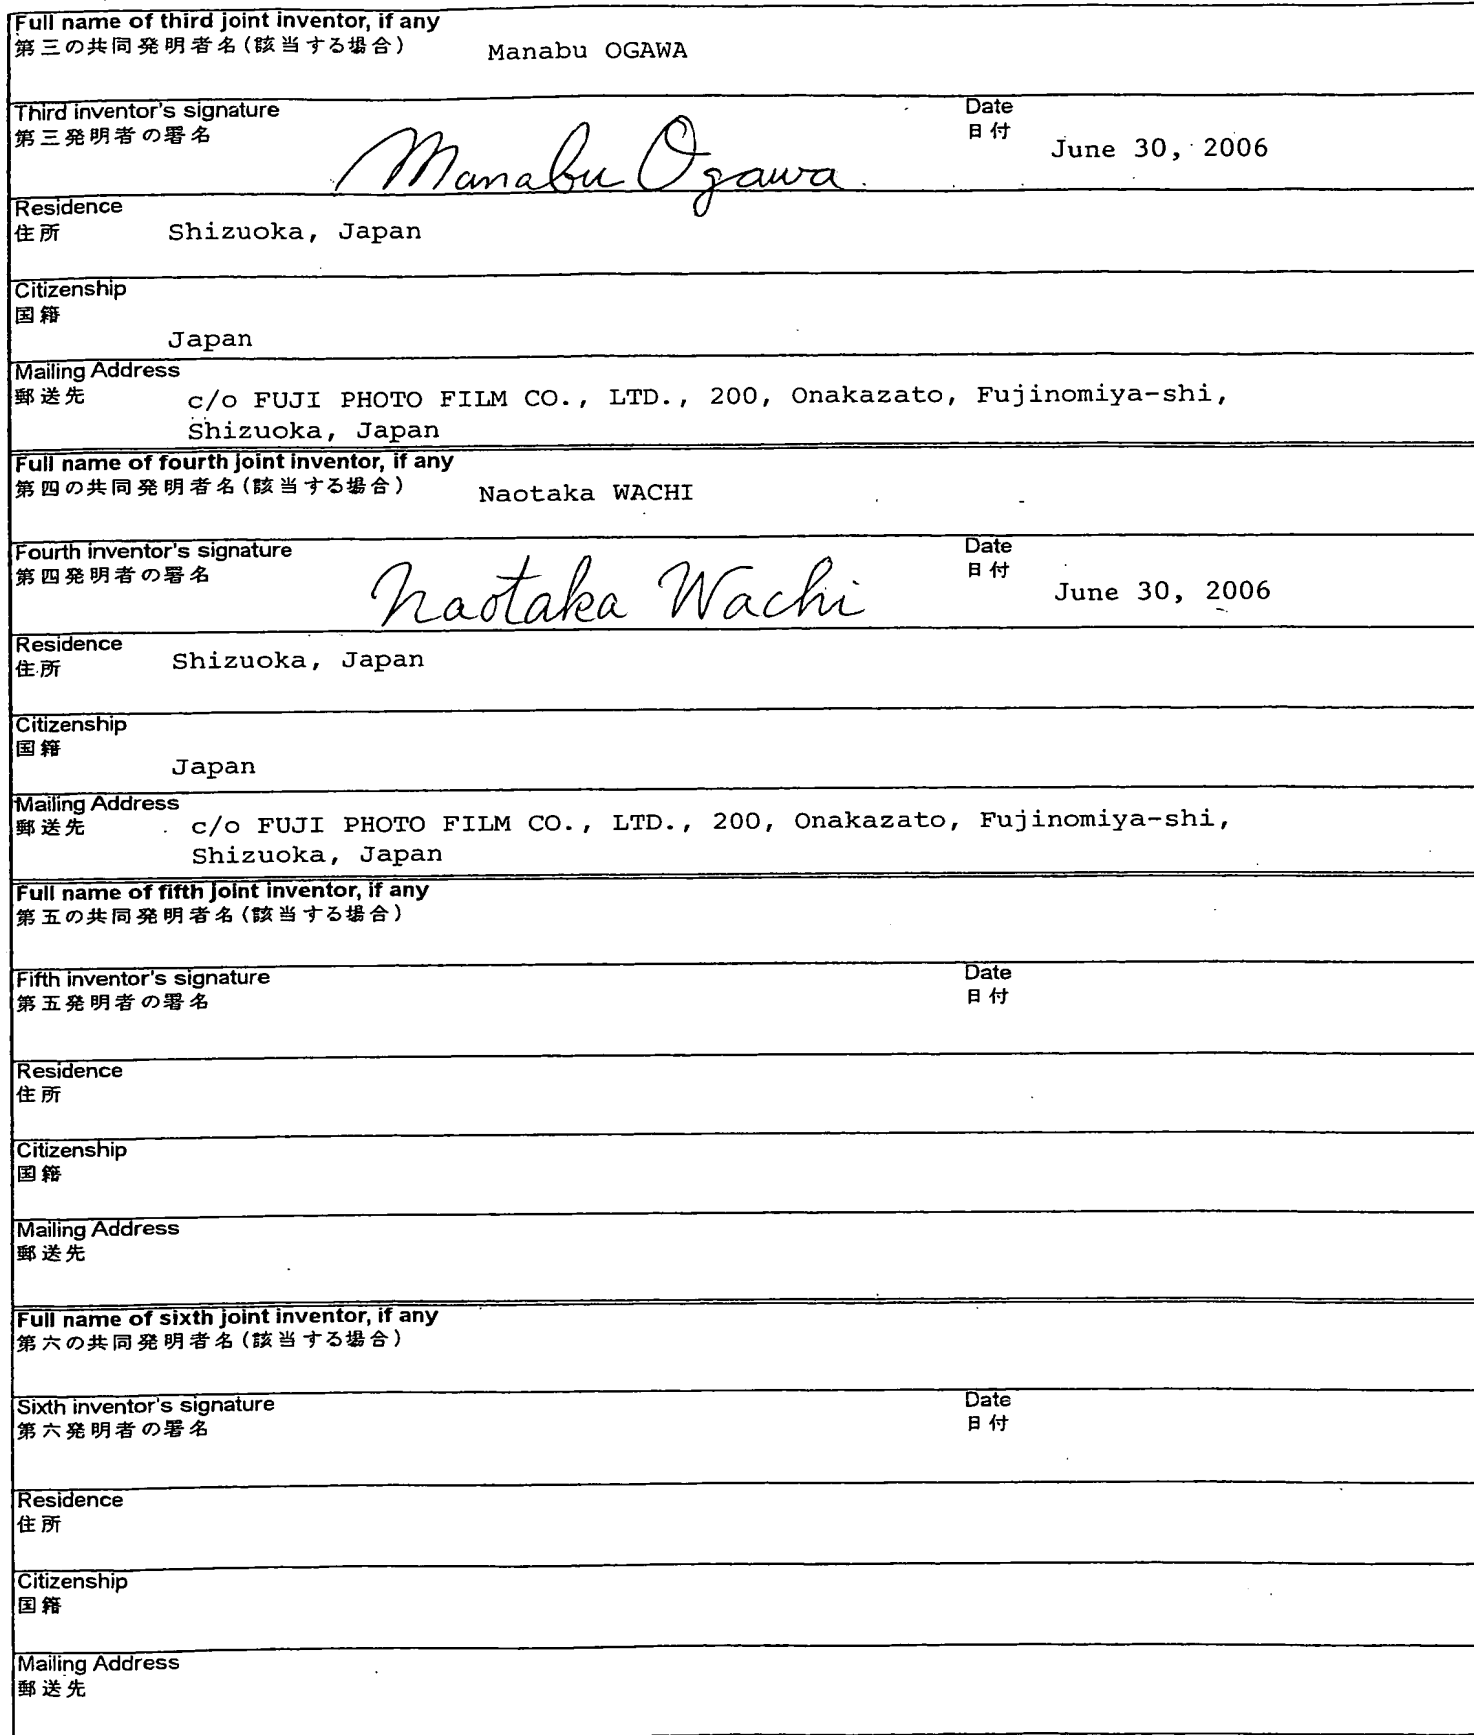 Full name of third joint inventor, if any
第三の共同発明者名(該当する場合) Manabu OGAWA
Third inventor's signature Date
第三発明者の署名 日付
Manabu Ogawa June 30, 2006
Residence
住所 Shizuoka, Japan
Citizenship
国籍
Japan
Mailing Address
郵送先 c/o FUJI PHOTO FILM CO., LTD., 200, Onakazato, Fujinomiya-shi,
Shizuoka, Japan
Full name of fourth joint inventor, if any
第四の共同発明者名(該当する場合) Naotaka WACHI
Fourth inventor's signature Date
第四発明者の署名 日付
Naotaka Wachi June 30, 2006
Residence
住所 Shizuoka, Japan
Citizenship
国籍
Japan
Mailing Address
郵送先 c/o FUJI PHOTO FILM CO., LTD., 200, Onakazato, Fujinomiya-shi,
Shizuoka, Japan
Full name of fifth joint inventor, if any
第五の共同発明者名(該当する場合)
Fifth inventor's signature Date
第五発明者の署名 日付
Residence
住所
Citizenship
国籍
Mailing Address
郵送先
Full name of sixth joint inventor, if any
第六の共同発明者名(該当する場合)
Sixth inventor's signature Date
第六発明者の署名 日付
Residence
住所
Citizenship
国籍
Mailing Address
郵送先